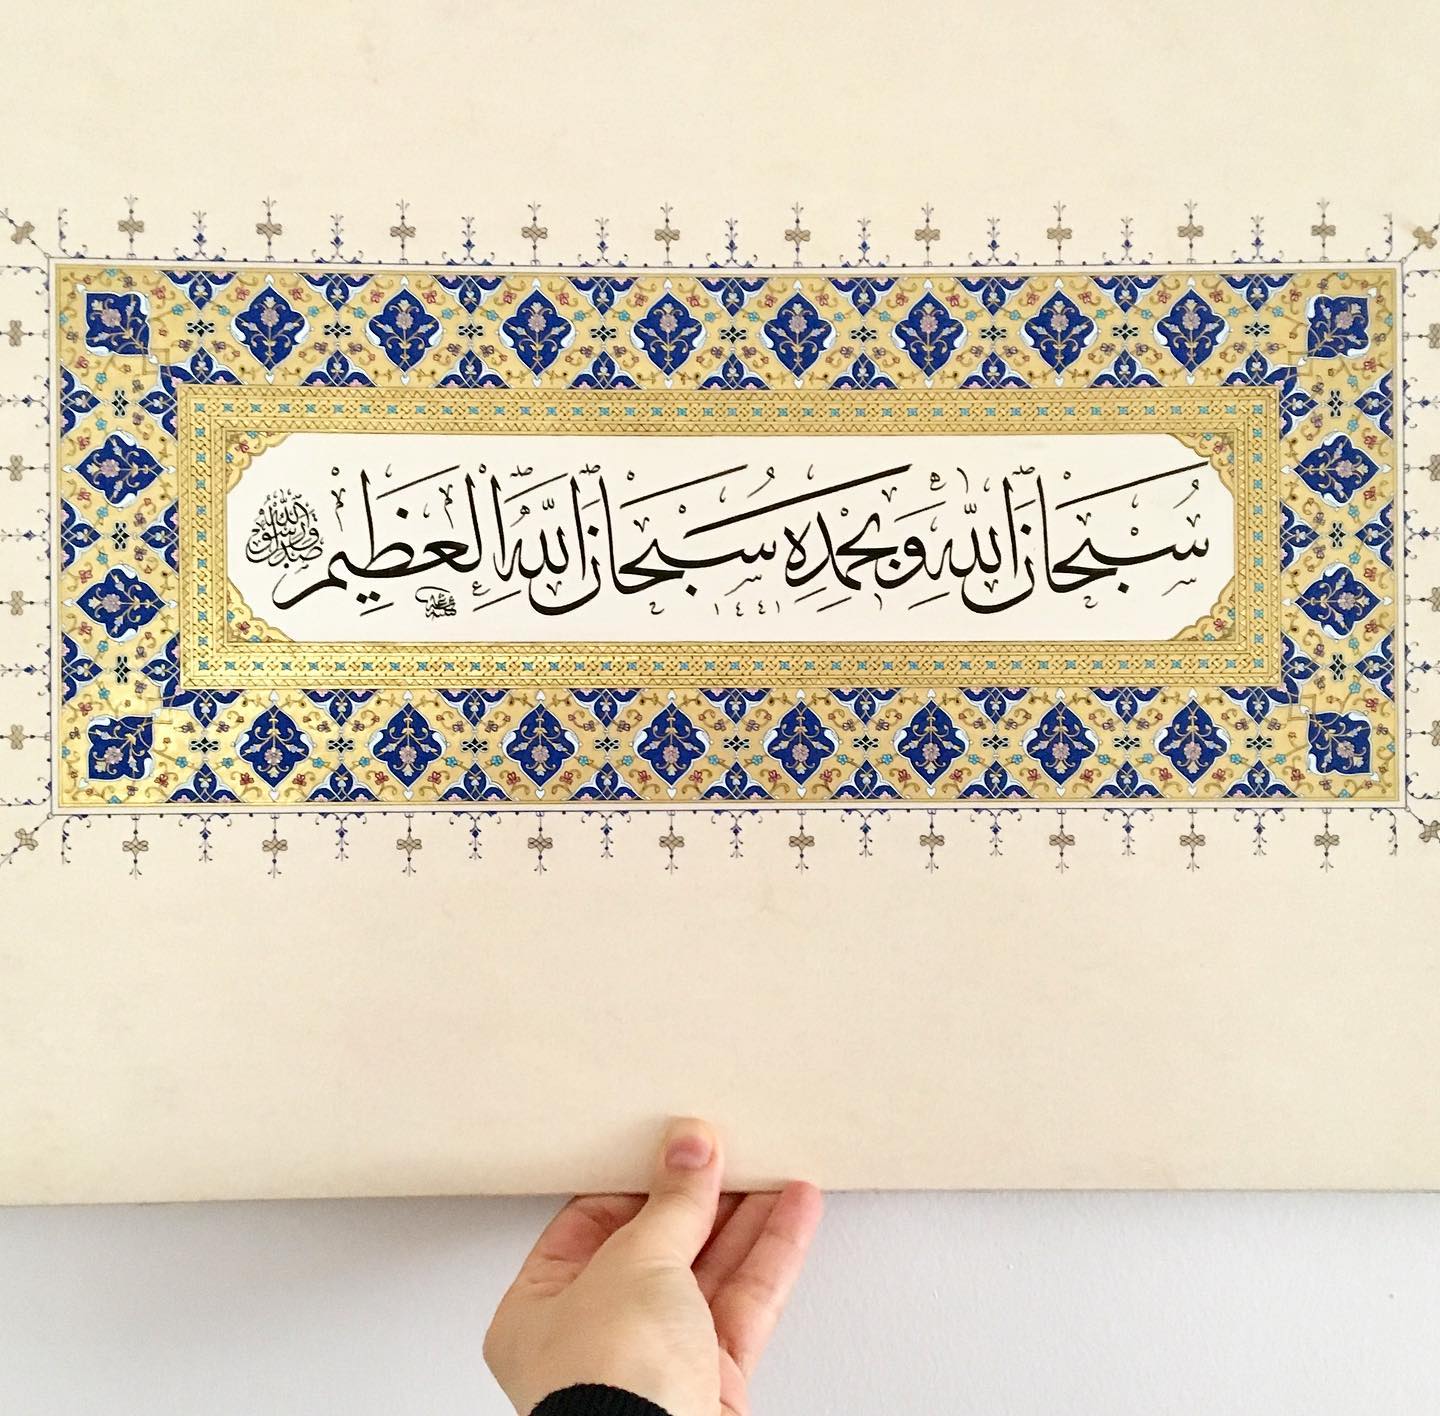 سُبْحَانَ اللّٰهِ وَبِحَمْدِهِ سُبْحَانَ اللّٰهِ الْعَظِيمِ
صدق رسول الله
١٤٤١